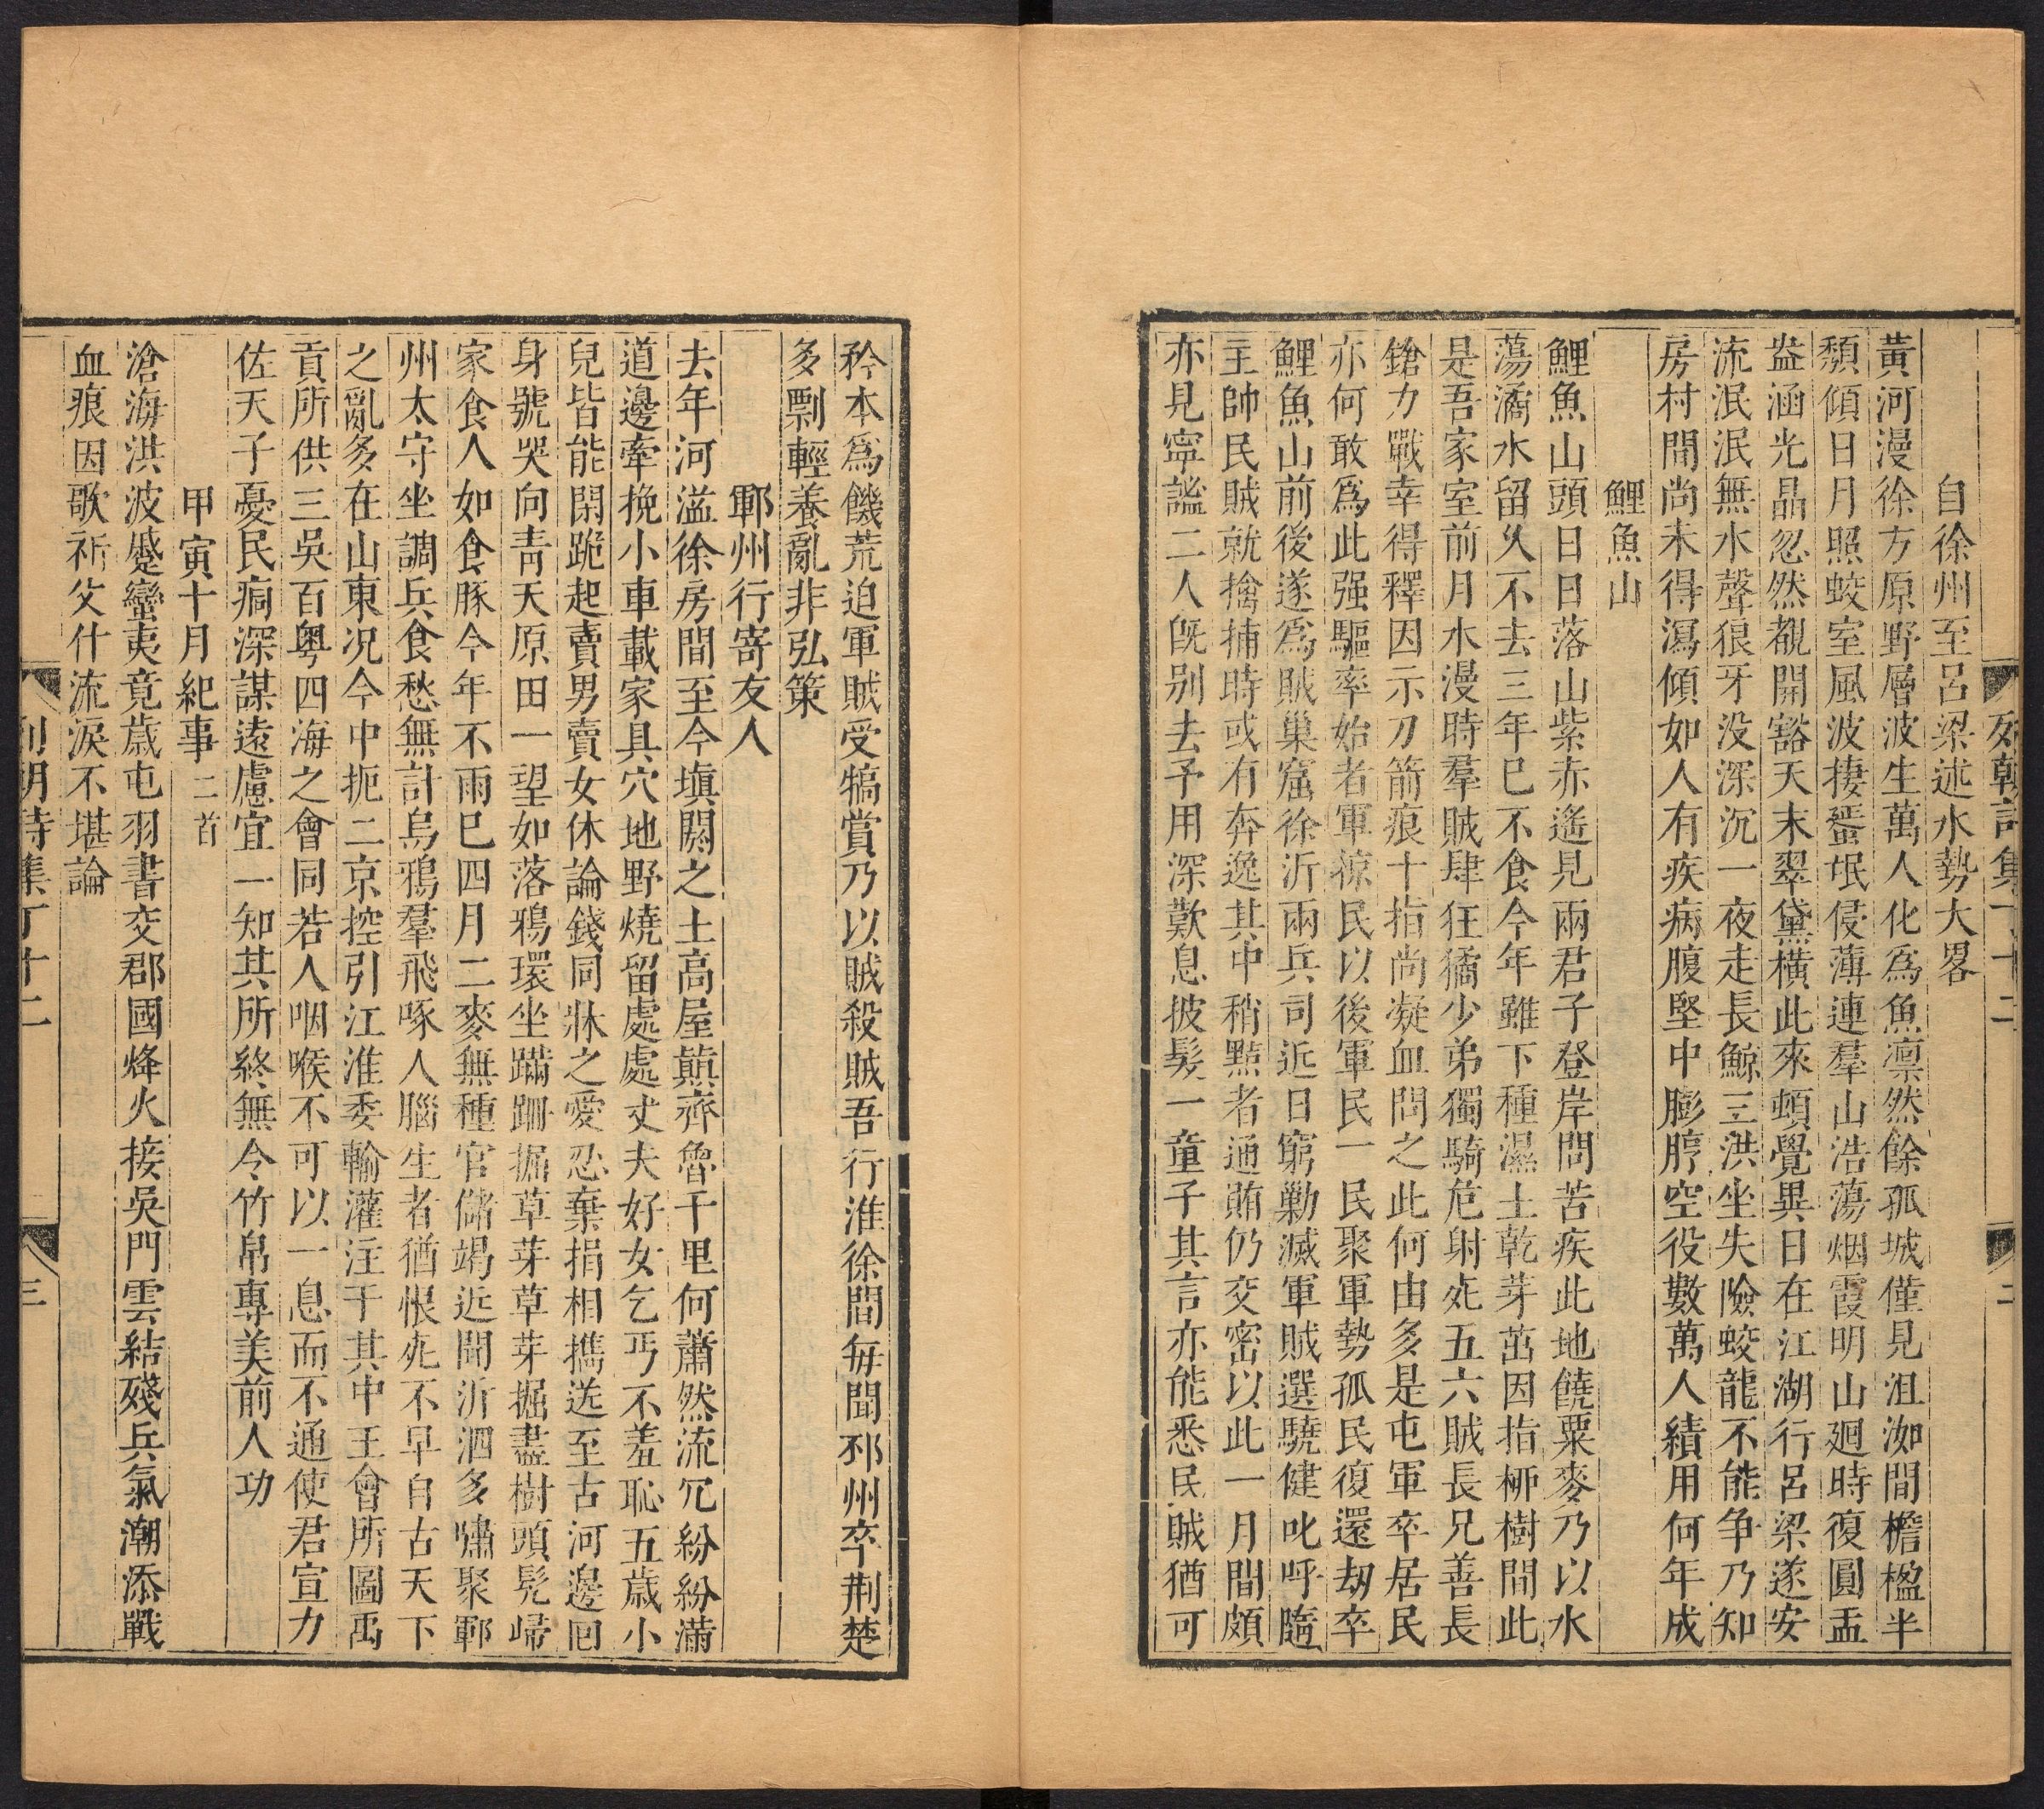 自徐州至呂梁述水勢大畧
黃河漫徐方原野層波生萬人化爲魚凛然餘孤城僅見沮洳間檐楹半
頽傾日月照蛟室風波捿蜑氓侵薄連羣山浩蕩烟霞明山廻時復圓盂
盎涵光晶忽然覩開豁天末翠黛橫此來頓覺異日在江湖行呂梁遂安
流泯泯無水聲狼牙没深沉一夜走長鯨三洪坐失險蛟龍不能争乃知
房村間尚未得瀉傾如人有疾病腹堅中膨脝空役數萬人績用何年成
鯉魚山
鯉魚山頭日日落山紫赤遙見兩君子登岸問苦疾此地饒粟麥乃以水
蕩潏水留久不去三年巳不食今年雖下種濕土乾芽茁因指栁樹間此
是吾家室前月水漫時羣賊肆狂獝少弟獨騎危射死五六賊長兄善長
鎗力戰幸得釋因示刀箭痕十指尚凝血問之此何由多是屯軍卒居民
亦何敢爲此强驅率始者軍掠民以後軍民一民聚軍勢孤民復還刼卒
鯉魚山前後遂爲賊巢窟徐沂兩兵司近日窮勦滅軍賊選驍健叱呼隨
主帥民賊就擒捕時或有奔逸其中稍黠者通賄仍交密以此一月間頗
亦見寧謐二人旣别去予用深歎息披髮一童子其言亦能悉民賊猶可
矜本爲饑荒迫軍賊受犒賞乃以賊殺賊吾行淮徐間每聞邳州卒荆楚
多剽輕養亂非弘策
鄆州行寄友人
去年河溢徐房間至今塡閼之土高屋顚齊魯千里何蕭然流冗紛紛滿
道邊牽挽小車載家具穴地野燒留處處丈夫好女乞丐不羞恥五歲小
兒皆能閑跪起賣男賣女休論錢同牀之愛忍棄捐相攜送至古河邊囘
身號哭向靑天原田一望如落鴉環坐蹣跚掘草芽草芽掘盡樹頭髠歸
家食人如食豚今年不雨巳四月二麥無種官儲竭近聞沂泗多嘯聚鄆
州太守坐調兵食愁無計烏鴉羣飛啄人腦生者猶恨死不早自古天下
之亂多在山東况今中扼二京控引江淮委輸灌注于其中王會所圖禹
貢所供三吳百粤四海之會同若人咽喉不可以一息而不通使君宣力
佐天子憂民痌深謀遠慮宜一知其所終無令竹帛專美前人功
甲寅十月紀事 二首
滄海洪波蹙蠻夷竟歲屯羽書交郡國烽火接吳門雲結殘兵氣潮添戰
血痕因歌祈父什流淚不堪論
列朝詩集丁十二
三